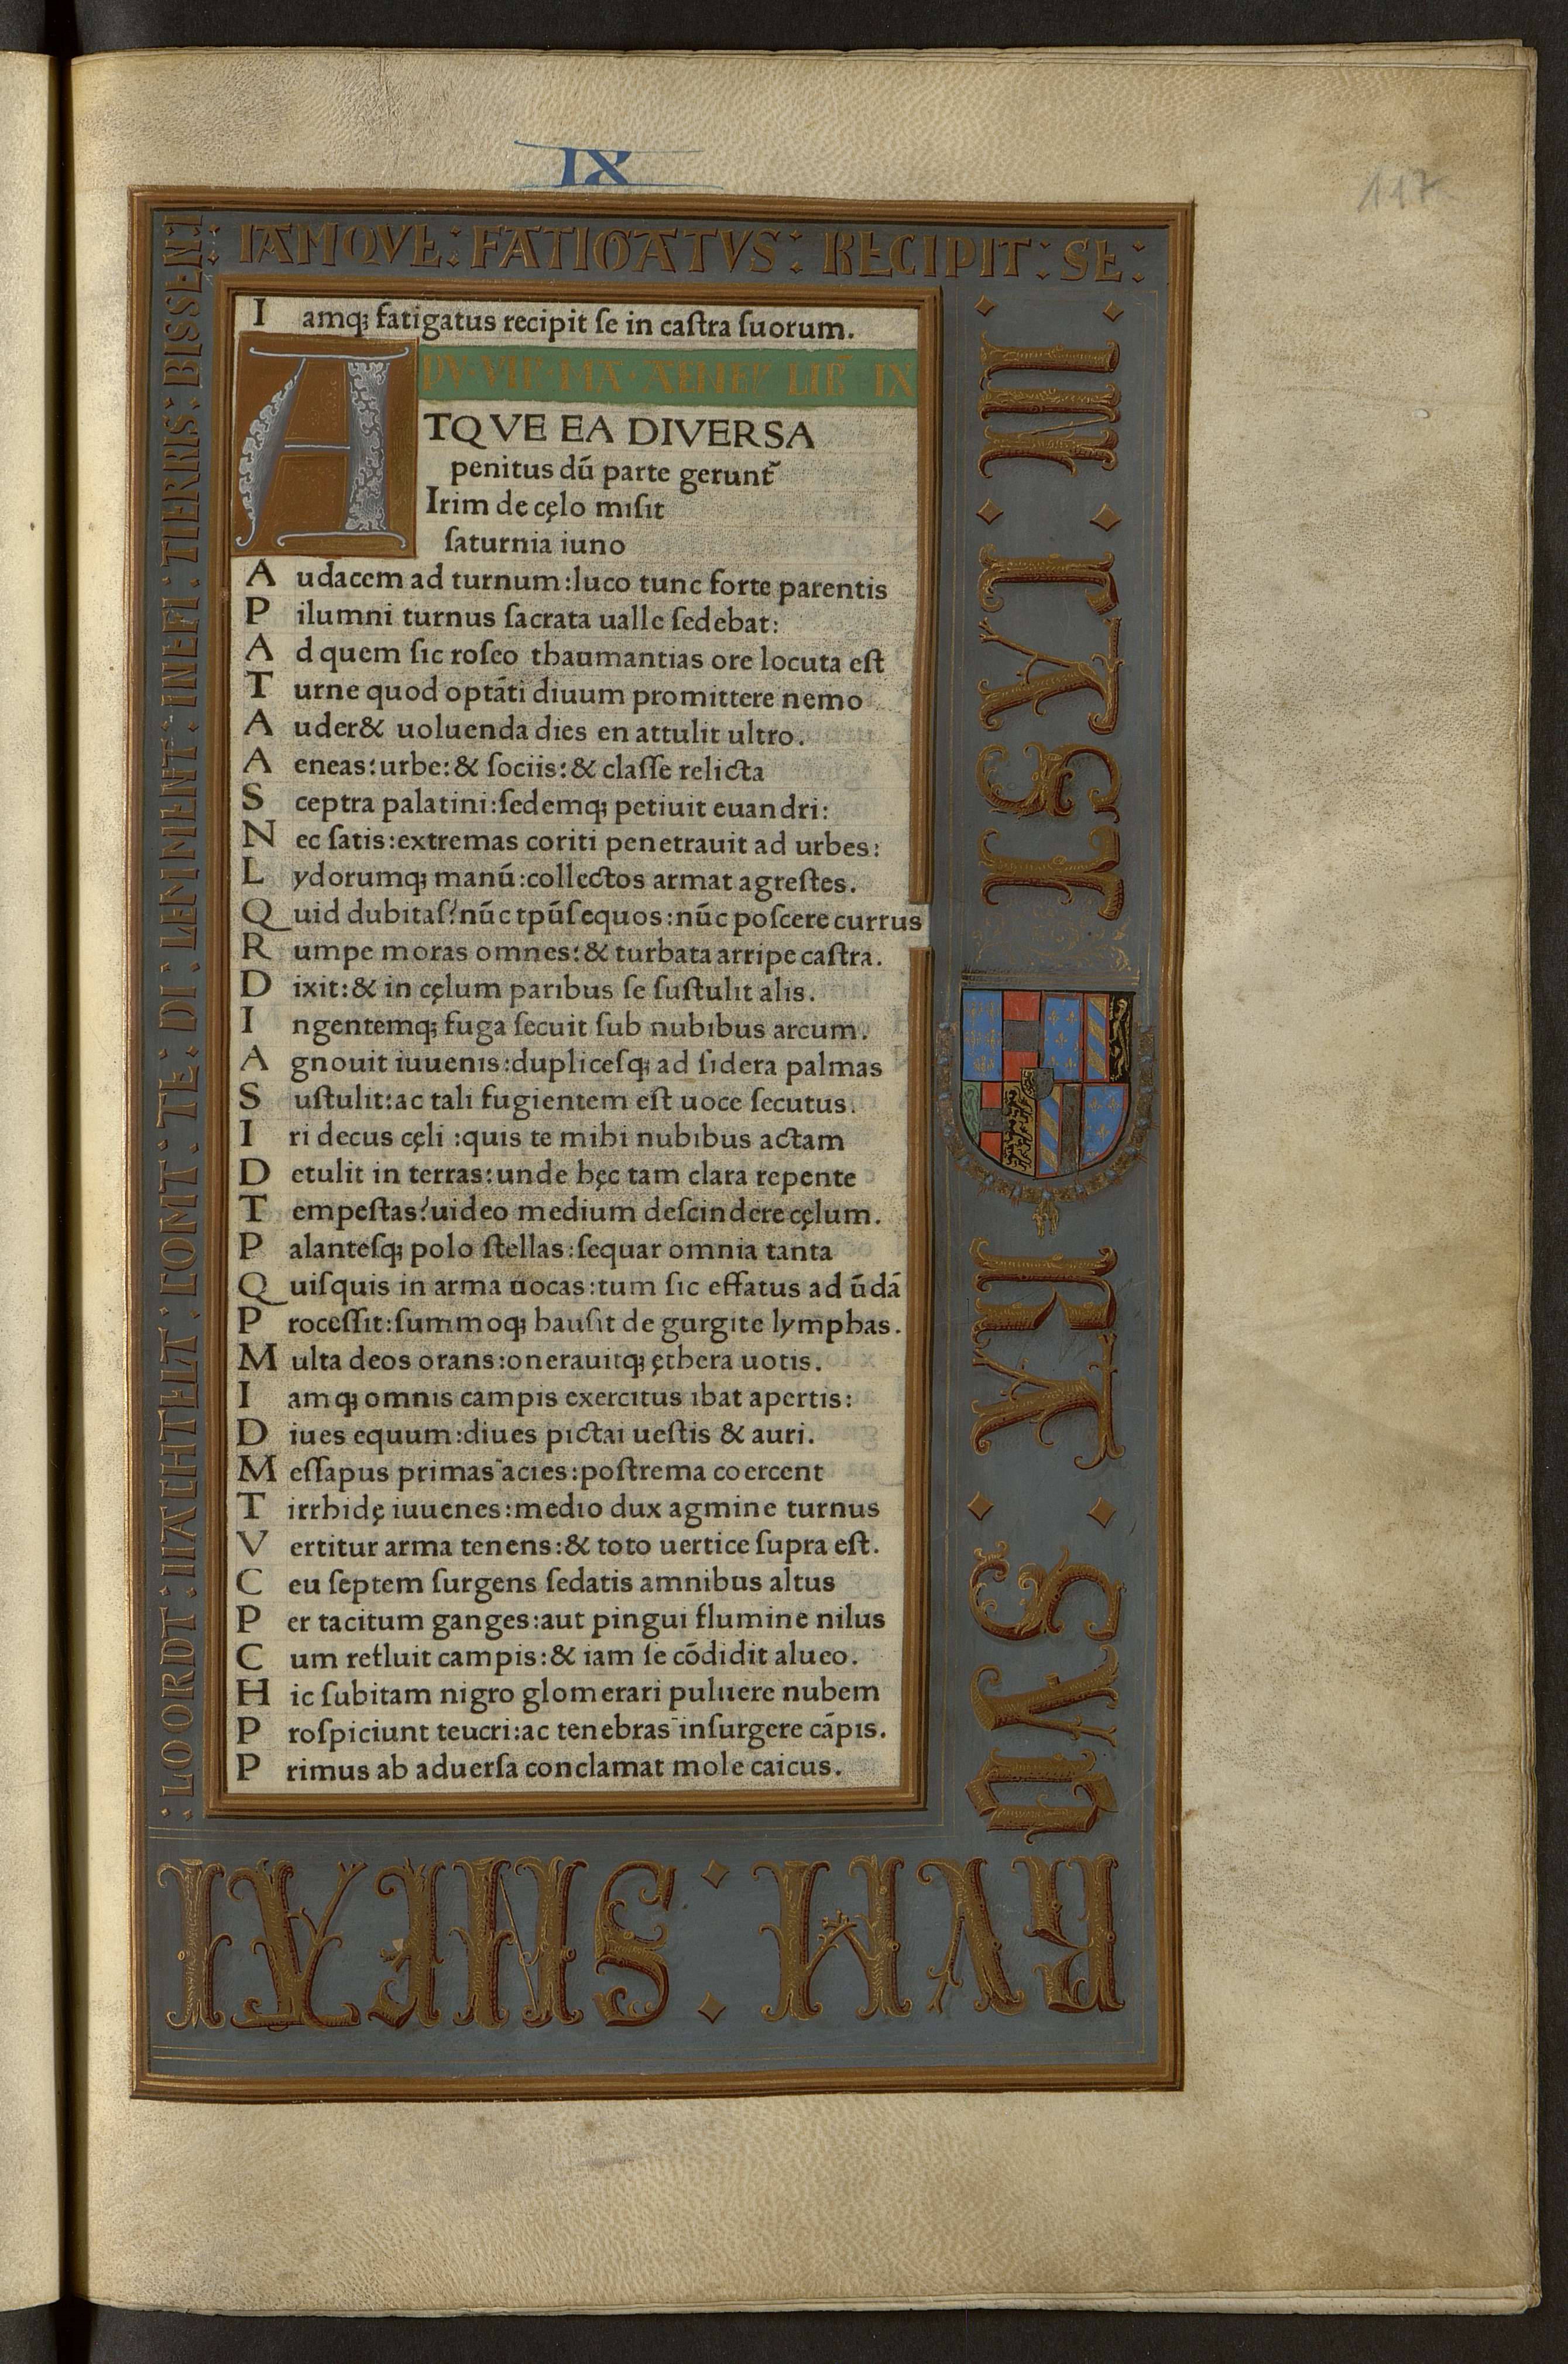 IX
117
IAMQVE : FATIGATVS : RECIPIT : SE :
IN CAST
RA SVO
RVM : 
I amqꝫ fatigatus recipit ſe in caſtra ſuorum.
LIB IX
ATQVE EA DIVERSA
penitus dū parte gerunt᷑
Irim de cęlo miſit
ſaturnia iuno
A udacem ad turnum:luco tunc forte parentis
P ilumni turnus ſacrata ualle ſedebat:
A d quem ſic roſeo thaumantias ore locuta eſt
T urne quod optāti diuum promittere nemo
A uder& uoluenda dies en attulit ultro.
A eneas:urbe:& ſociis:& claſſe relicta
S ceptra palatini:ſedemqꝫ petiuit euandri:
N ec ſatis:extremas coriti penetrauit ad urbes:
L ydorumqꝫ manū:collectos armat agreſtes.
Q uid dubitaſ?nūc tpūſ equos:nūc poſcere currus
R umpe moras omnes:& turbata arripe caſtra.
D ixit:& in cęlum paribus ſe ſuſtulit alis.
I ngentemqꝫ fuga ſecuit ſub nubibus arcum.
A gnouit iuuenis:dupliceſqꝫ ad ſidera palmas
S uſtulit:ac tali fugientem eſt uoce ſecutus.
I ri decus cęli :quis te mihi nubibus actam
D etulit in terras:unde hęc tam clara repente
T empeſtas?uideo medium deſcindere cęlum.
P alanteſqꝫ polo ſtellas:ſequar omnia tanta
Q uiſquis in arma uocas:tum ſic effatus ad ūdā
P roceſſit:ſummoqꝫ hauſit de gurgite lymphas.
M ulta deos orans:onerauitqꝫ ęthera uotis.
I amqꝫ omnis campis exercitus ibat apertis:
D iues equum:diues pictai ueſtis & auri.
M eſſapus primas acies:poſtrema coercent
T irrhidę iuuenes:medio dux agmine turnus
V ertitur arma tenens:& toto uertice ſupra eſt.
C eu ſeptem ſurgens ſedatis amnibus altus
P er tacitum ganges:aut pingui flumine nilus
C um refluit campis:& iam ſe cōdidit alueo.
H ic ſubitam nigro glomerari puluere nubem
P roſpiciunt teucri:ac tenebras inſurgere cāpis.
P rimus ab aduerſa conclamat mole caicus.